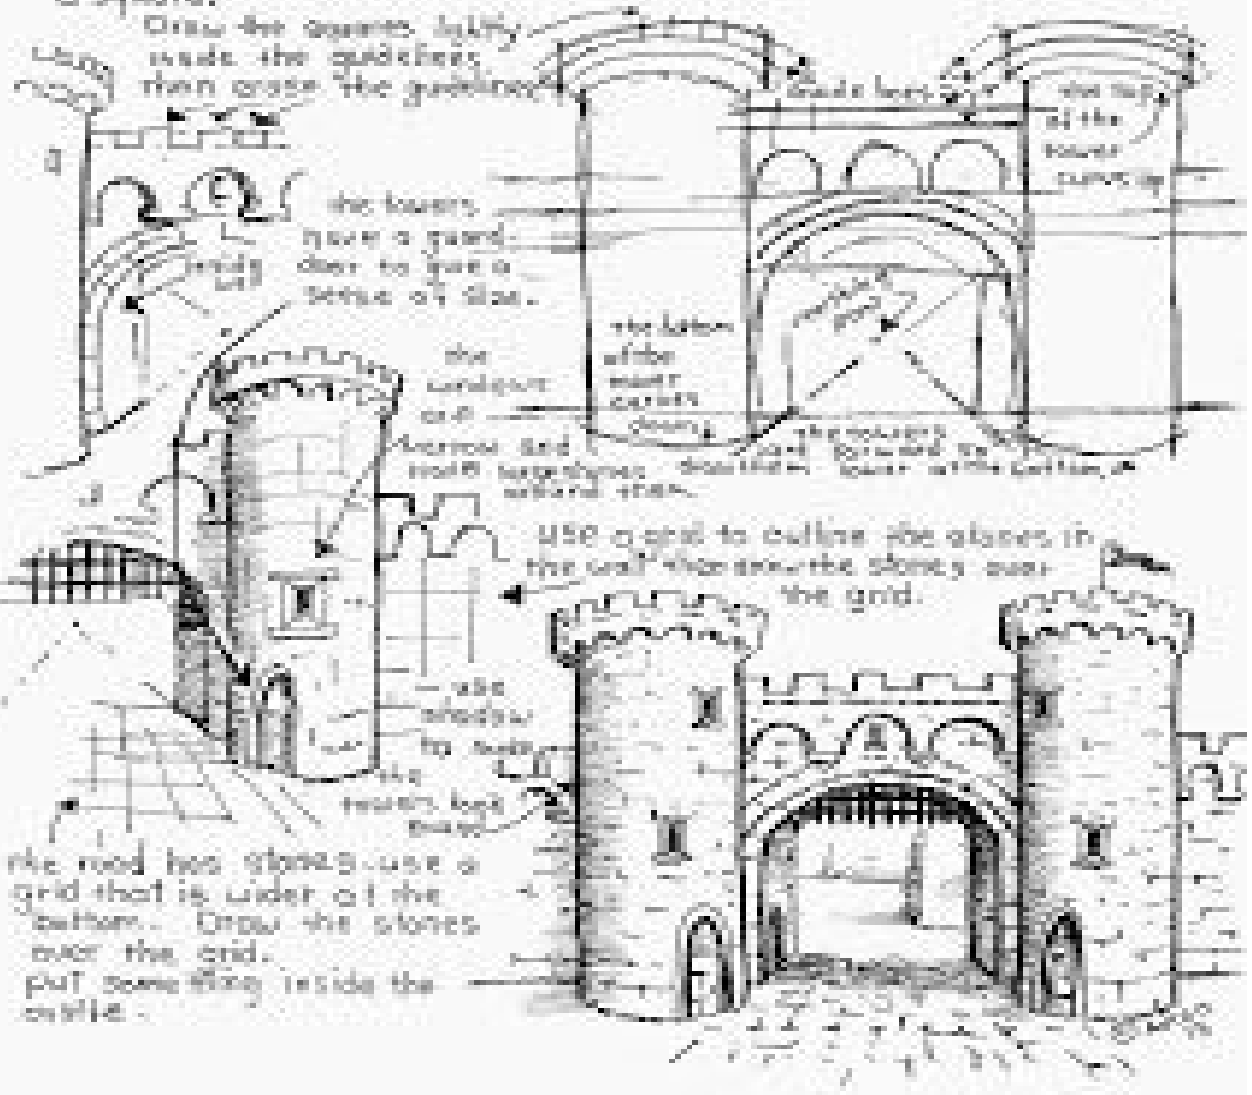 a square.
Draw the squares lightly
inside the guidelines
then erase the guidelines
guide lines
the top
of the
tower
curves up
the towers
have a guard
door to give a
sense of size.
inside
wall
the bottom
of the
tower
curves
down
the
windows
are
narrow and
have
around them.
the towers
are forward so
lower at the bottom
use a grid to outline the stones in
the wall then draw the stones over
the grid.
use
shadow
to make
the
towers look
the road has stones. use a
grid that is wider at the
bottom. Draw the stones
over the grid.
put something inside the
castle.